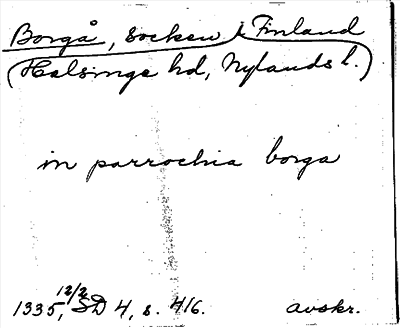 Borgå, socken, Finland
(Helsinge hd, Nylands l.)
in parrochia borga
1335, 12/2, SD 4, s. 416. avskr.